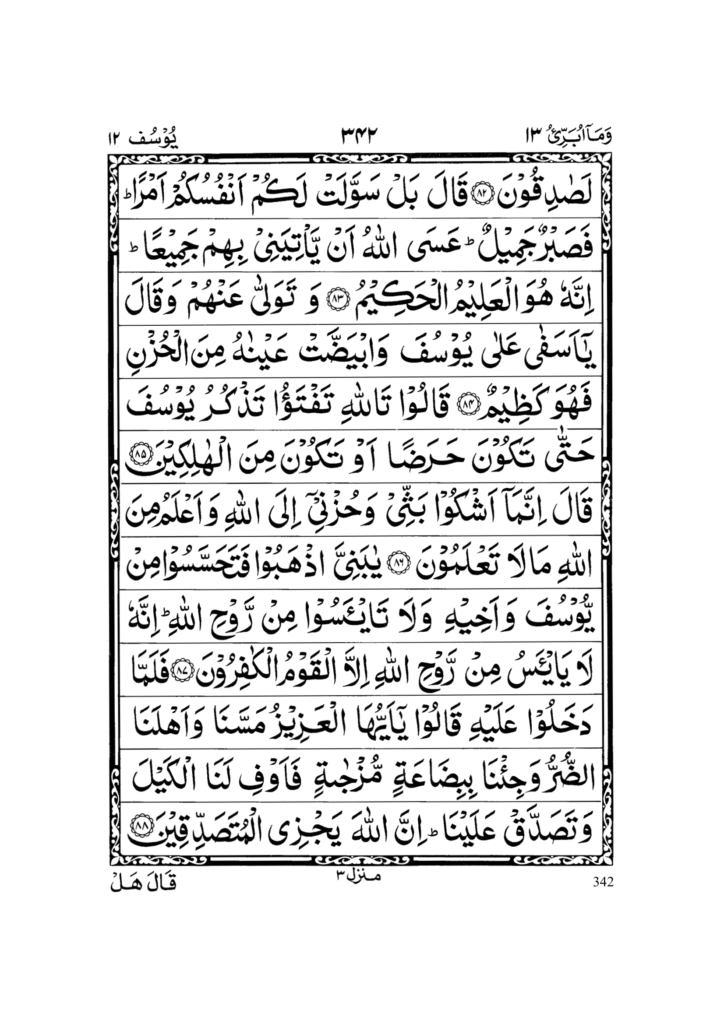 وَمَاۤ اُبَرِّئُ ۱۳ ۳۴۲ یُوْسُف ۱۲
لَصٰدِقُوْنَ ۸۲ قَالَ بَلْ سَوَّلَتْ لَكُمْ اَنْفُسُكُمْ اَمْرًا ؕ
فَصَبْرٌ جَمِیْلٌ ؕ عَسَی اللّٰهُ اَنْ یَّاْتِیَنِیْ بِهِمْ جَمِیْعًا ؕ
اِنَّهٗ هُوَ الْعَلِیْمُ الْحَكِیْمُ ۸۳ وَ تَوَلّٰی عَنْهُمْ وَقَالَ
یٰۤاَسَفٰی عَلٰی یُوْسُفَ وَابْیَضَّتْ عَیْنٰهُ مِنَ الْحُزْنِ
فَهُوَ كَظِیْمٌ ۸۴ قَالُوْا تَاللّٰهِ تَفْتَؤُا تَذْكُرُ یُوْسُفَ
حَتّٰی تَكُوْنَ حَرَضًا اَوْ تَكُوْنَ مِنَ الْهٰلِكِیْنَ ۸۵
قَالَ اِنَّمَاۤ اَشْكُوْا بَثِّیْ وَحُزْنِیْۤ اِلَی اللّٰهِ وَاَعْلَمُ مِنَ
اللّٰهِ مَا لَا تَعْلَمُوْنَ ۸۶ یٰبَنِیَّ اذْهَبُوْا فَتَحَسَّسُوْا مِنْ
یُّوْسُفَ وَاَخِیْهِ وَلَا تَایْـَٔسُوْا مِنْ رَّوْحِ اللّٰهِ ؕ اِنَّهٗ
لَا یَایْـَٔسُ مِنْ رَّوْحِ اللّٰهِ اِلَّا الْقَوْمُ الْكٰفِرُوْنَ ۸۷ فَلَمَّا
دَخَلُوْا عَلَیْهِ قَالُوْا یٰۤاَیُّهَا الْعَزِیْزُ مَسَّنَا وَاَهْلَنَا
الضُّرُّ وَجِئْنَا بِبِضَاعَةٍ مُّزْجٰىةٍ فَاَوْفِ لَنَا الْكَیْلَ
وَتَصَدَّقْ عَلَیْنَا ؕ اِنَّ اللّٰهَ یَجْزِی الْمُتَصَدِّقِیْنَ ۸۸
قَالَ هَلْ منزل ۳ 342